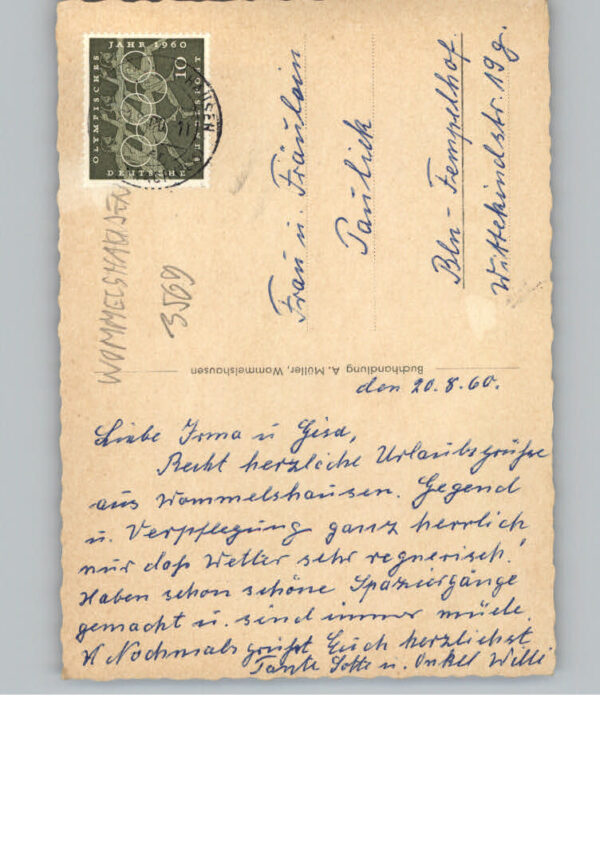 OLYMPISCHES
JAHR 1960
10
DEUTSCHE
BUNDESPOST
HAUSEN
WOMMELSHAUSEN
3569
Frau u. Fräulein
Paulick
Bln-Tempelhof.
Wittekindstr. 19 g.
Buchhandlung A. Müller, Wommelshausen
den 20.8.60.
Liebe Irma u Gisa,
Recht herzliche Urlaubsgrüße
aus Wommelshausen. Gegend
u. Verpflegung ganz herrlich
nur daß Wetter sehr regnerisch!
Haben schon schöne Spaziergänge
gemacht u. sind immer müde.
Nochmals grüßt Euch herzlichst
Tante Lotte u. Onkel Willi